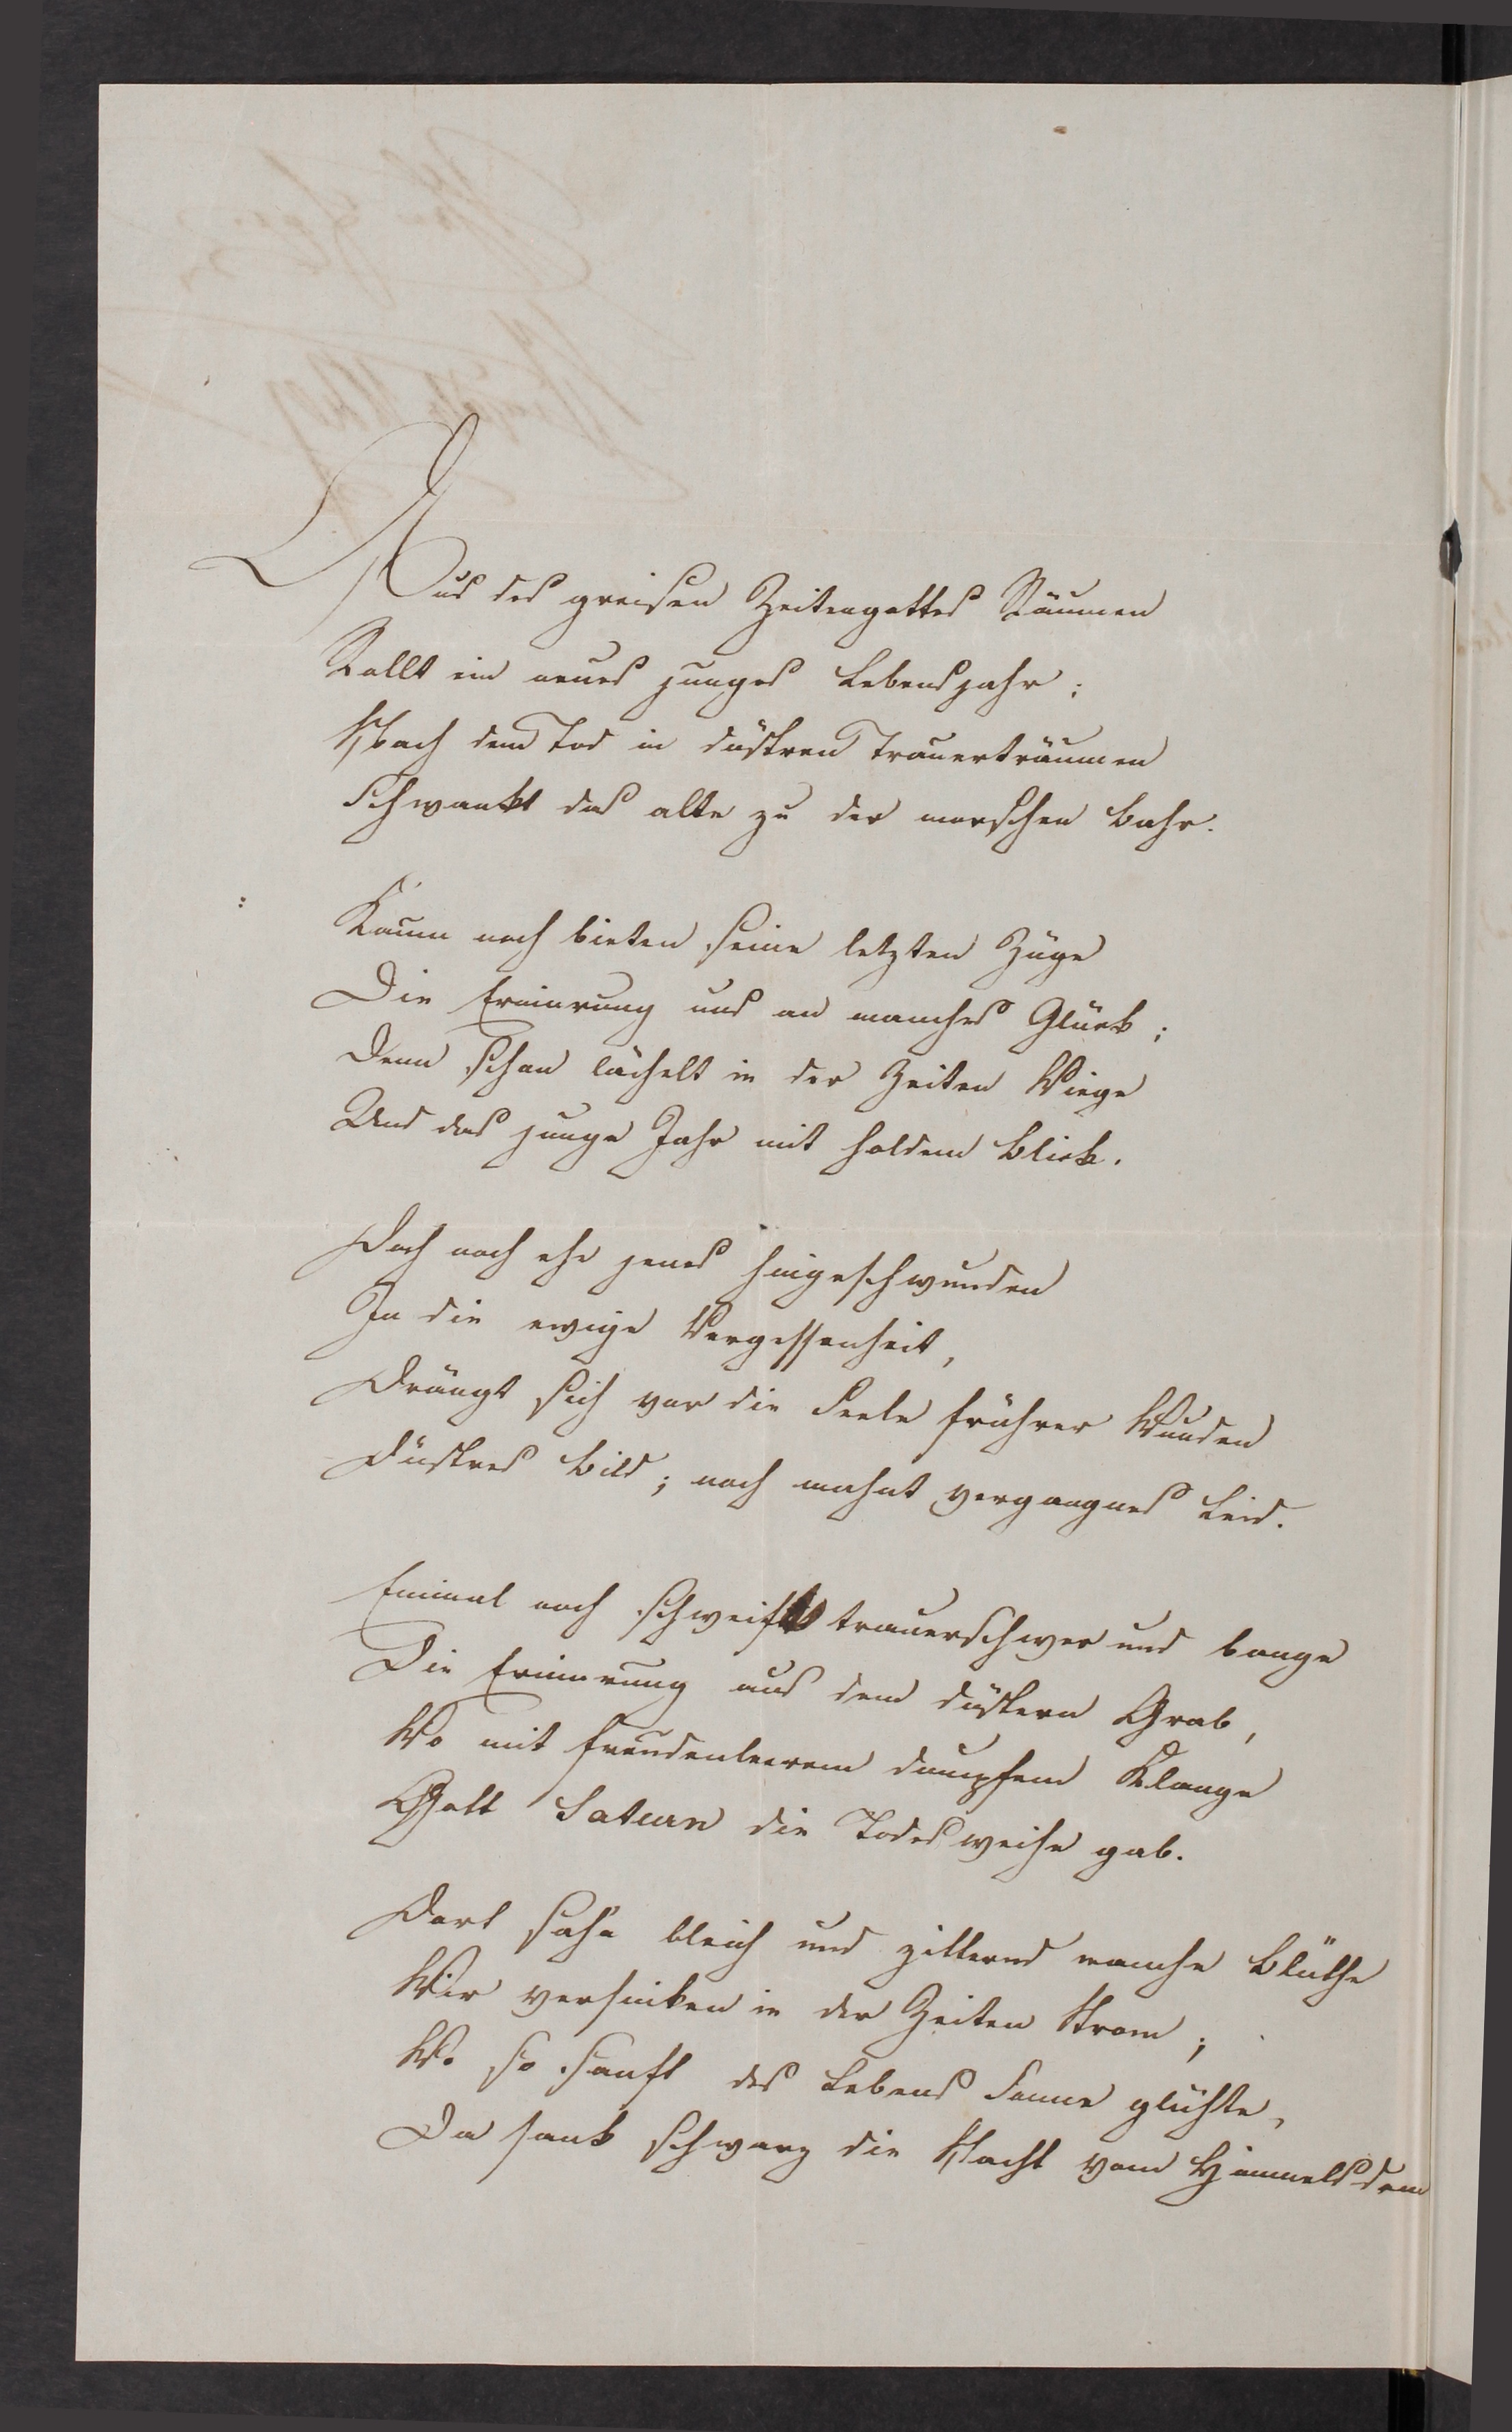 Aus des greisen Zeitengottes Räumen
Rollt ein neues junges Lebensjahr;
Schwach dem Tod in düstren Trauerträumen
Schwankt das alte zu der morschen Bahr.
Kaum noch bieten seine letzten Züge
Die Erinnrung uns an manches Glück;
Denn schon lächelt in der Zeiten Wiege
Uns das junge Jahr mit holdem Blick.
Doch noch ehe jenes hingeschwunden
In die ewige Vergessenheit,
Drängt sich vor die Seele frührer Wunden
Düstres Bild; noch mahnt vergangnes Leid.
Einmal noch schweift trauerschwer und bange
Die Erinnrung aus dem düstern Grab,
Wo mit freudenleerem dumpfem Klange
Gott Saturn die Todesweihe gab.
Dort sah'n bleich und zitternd manche Blüthe
Wir versinken in der Zeiten Strom;
Wo so sanft des Lebens Sonne glühte,
Da sank schwarz die Nacht vom Himmelsdom